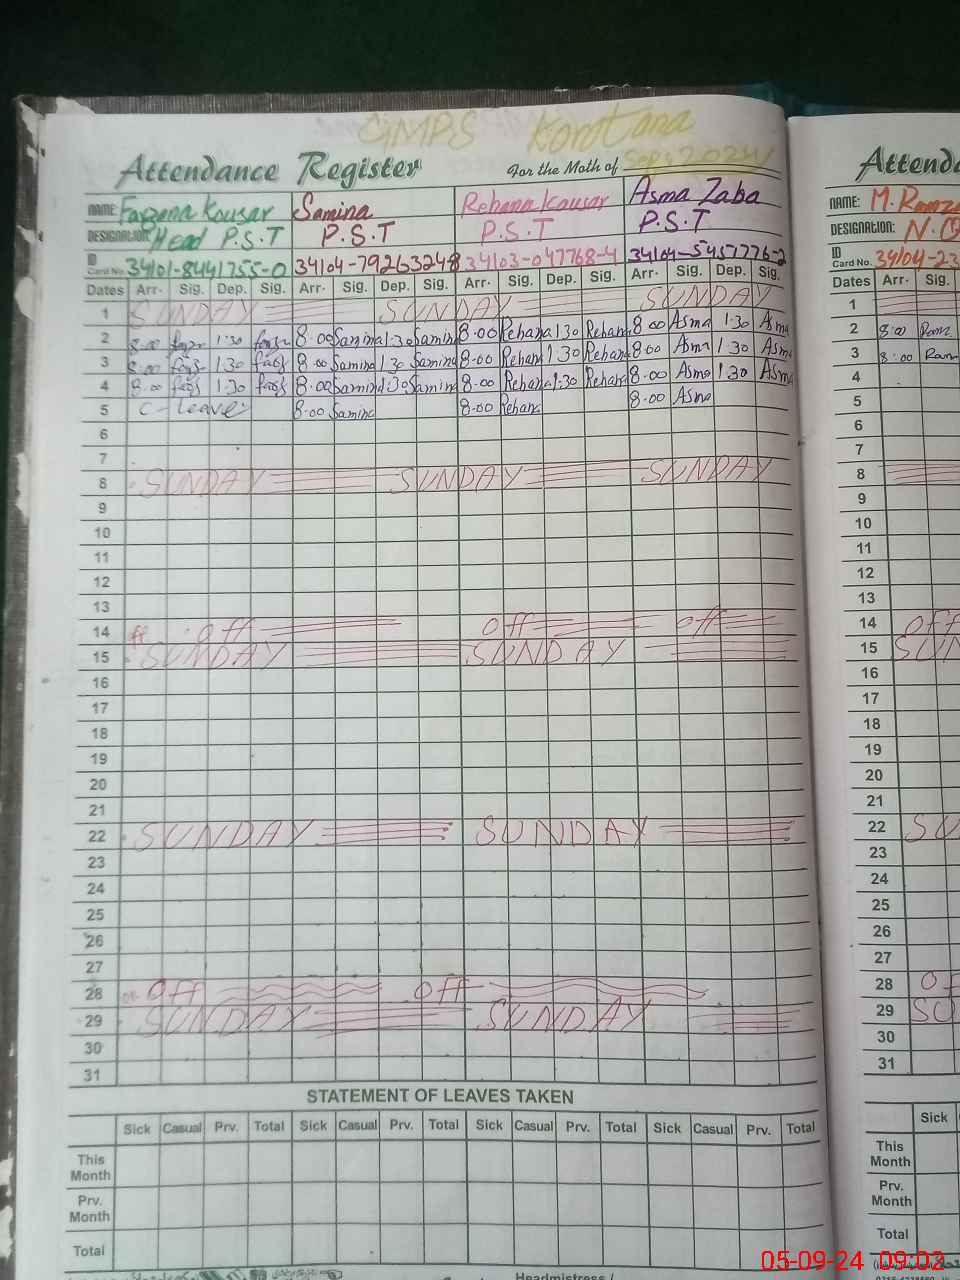 GMPS Korotana
Attendance Register For the Moth of Sep, 2024 Attenda
NAME: Farzana Kousar Samina Rehana Kousar Asma Zaba NAME: M. Ramz
DESIGNATION: Head P.S.T P.S.T P.S.T P.S.T DESIGNATION: N.
ID Card No. 34101-8441755-0 34104-79263248 34103-047768-4 34104-5457776-2 ID Card No. 34104-23
Dates Arr. Sig. Dep. Sig. Arr. Sig. Dep. Sig. Arr. Sig. Dep. Sig. Arr. Sig. Dep. Sig. Dates Arr. Sig.
1 SUNDAY SUNDAY SUNDAY 1
2 8.00 1.30 8.00 Samina 1.30 Samina 8.00 Rehana 1.30 Rehana 8.00 Asma 1:30 Asma 2 8:00 Ram
3 8.00 1.30 8.00 Samina 1.30 Samina 8.00 Rehana 1.30 Rehana 8.00 Asma 1.30 Asma 3 8:00 Ram
4 8.00 1.30 8.00 Samina 1.30 Samina 8.00 Rehana 1.30 Rehana 8.00 Asma 1.30 Asma 4
5 C-Leave 8.00 Samina 8.00 Rehana 8.00 Asma 5
6 6
7 7
8 SUNDAY SUNDAY SUNDAY 8
9 9
10 10
11 11
12 12
13 13
14 off off off 14 off
15 SUNDAY SUNDAY 15 SUN
16 16
17 17
18 18
19 19
20 20
21 21
22 SUNDAY SUNDAY 22 SU
23 23
24 24
25 25
26 26
27 27
28 Off Off 28 Of
29 SUNDAY SUNDAY 29 SU
30 30
31 31
STATEMENT OF LEAVES TAKEN
Sick Casual Prv. Total Sick Casual Prv. Total Sick Casual Prv. Total Sick Casual Prv. Total Sick
This Month This Month
Prv. Month Prv. Month
Total Total
Headmistress /
05-09-24 09:02